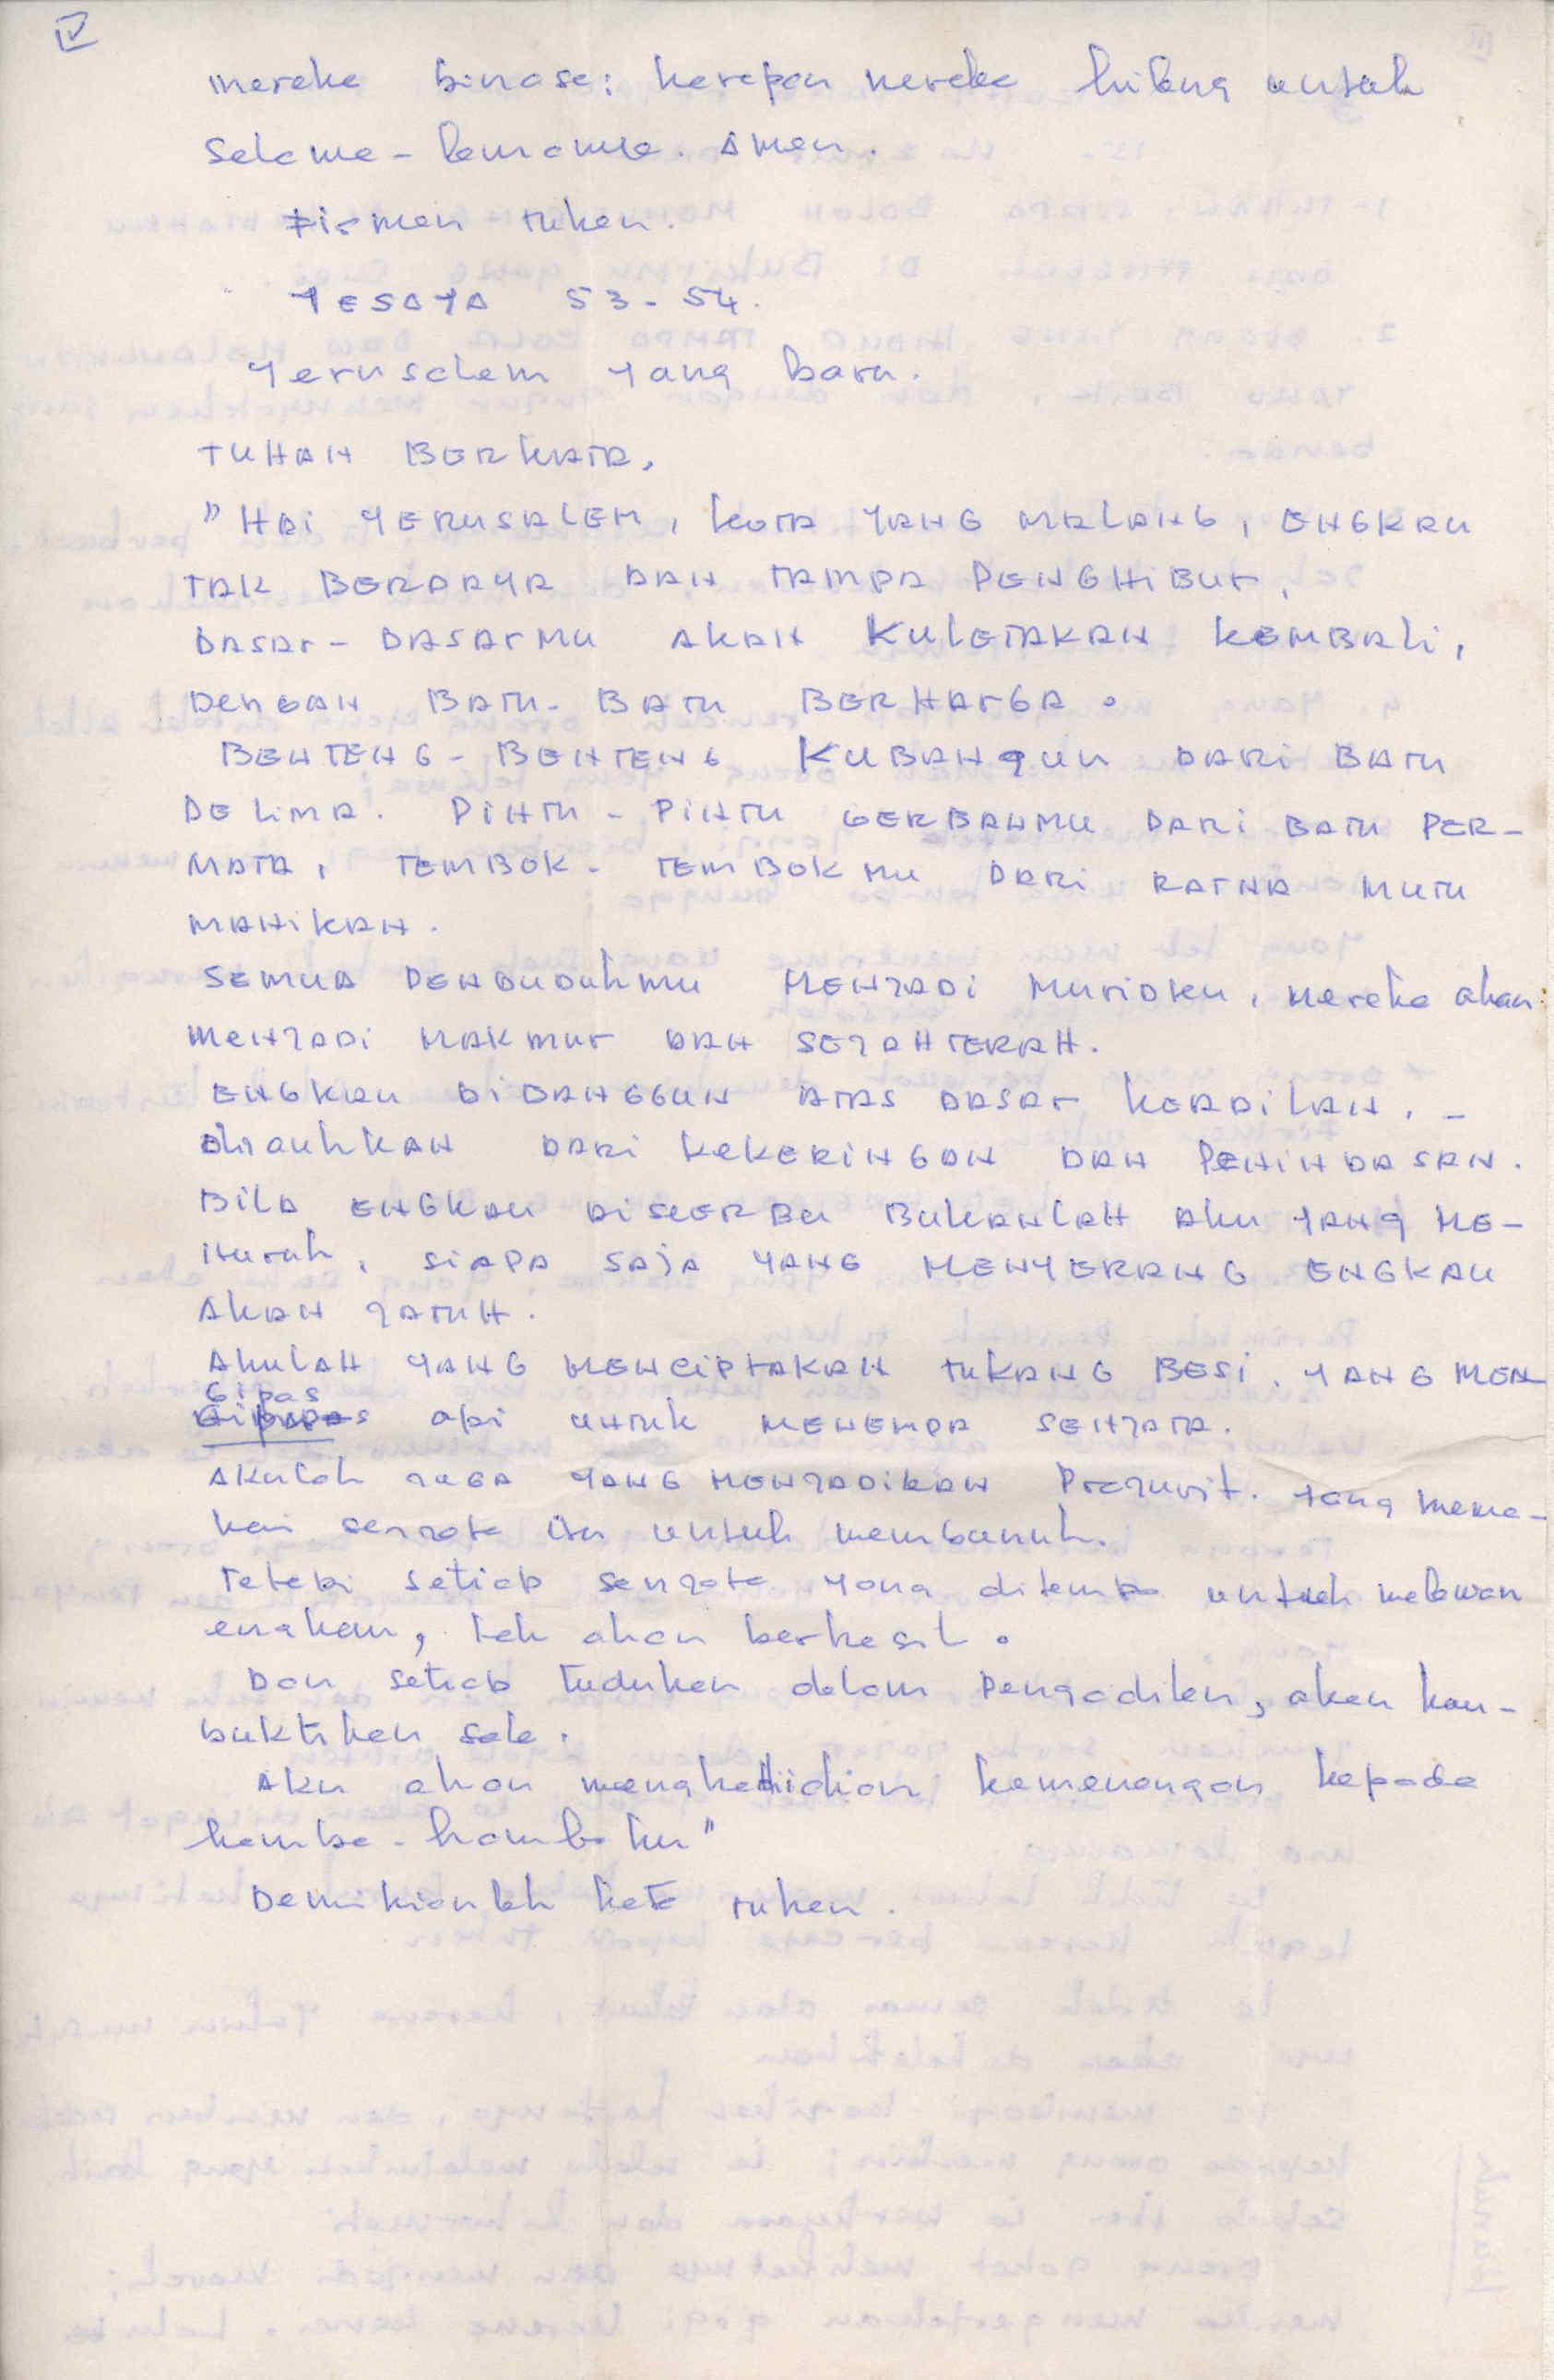 IV
mereka binasa: harapan mereka hilang untuk
selama-lamanya. Amen.
Firman Tuhan.
YESAYA 53-54.
Yerusalem yang baru.
TUHAN BERKATA,
"HAI YERUSALEM, KOTA YANG MALANG, ENGKAU
TAK BERDAYA DAN TAMPA PENGHIBUR,
DASAR-DASARMU AKAN KULETAKAN KEMBALI,
DENGAN BATU-BATU BERHARGA.
BENTENG-BENTENG KUBANGUN DARI BATU
DELIMA. PINTU-PINTU GERBANMU DARI BATU PER-
MATA, TEMBOK-TEMBOKMU DARI RATNA MUTU
MANIKAN.
SEMUA PENDUDUKMU MENJADI MURIDKU, mereka akan
MENJADI MAKMUR DAN SEJAHTERAH.
ENGKAU DIBANGGUN ATAS DASAR KEADILAN. -
dijauhkan DARI KEKERINGAN DAN PENINDASAN.
BILA ENGKAU DISERBU BUKANLAH AKU YANG ME-
nuruh, SIAPA SAJA YANG MENYERANG ENGKAU
AKAN JATUH.
AKULAH YANG MENCIPTAKAN TUKANG BESI. YANG MEN
Gipas
api UNTUK MENEMPA SENJATA.
AKULAH JUGA YANG MENJADIKAN Prajurit. Yang mema-
kai senjata itu untuk membunuh.
Tetapi setiap senjata yang ditempa untuk melawan
engkau, tak akan berhasil.
Dan setiap tuduhan dalam Pengadilan, akan kau-
buktikan sala.
Aku akan kemenangan kepada
hamba-hambaku"
Demikianlah kata Tuhan.